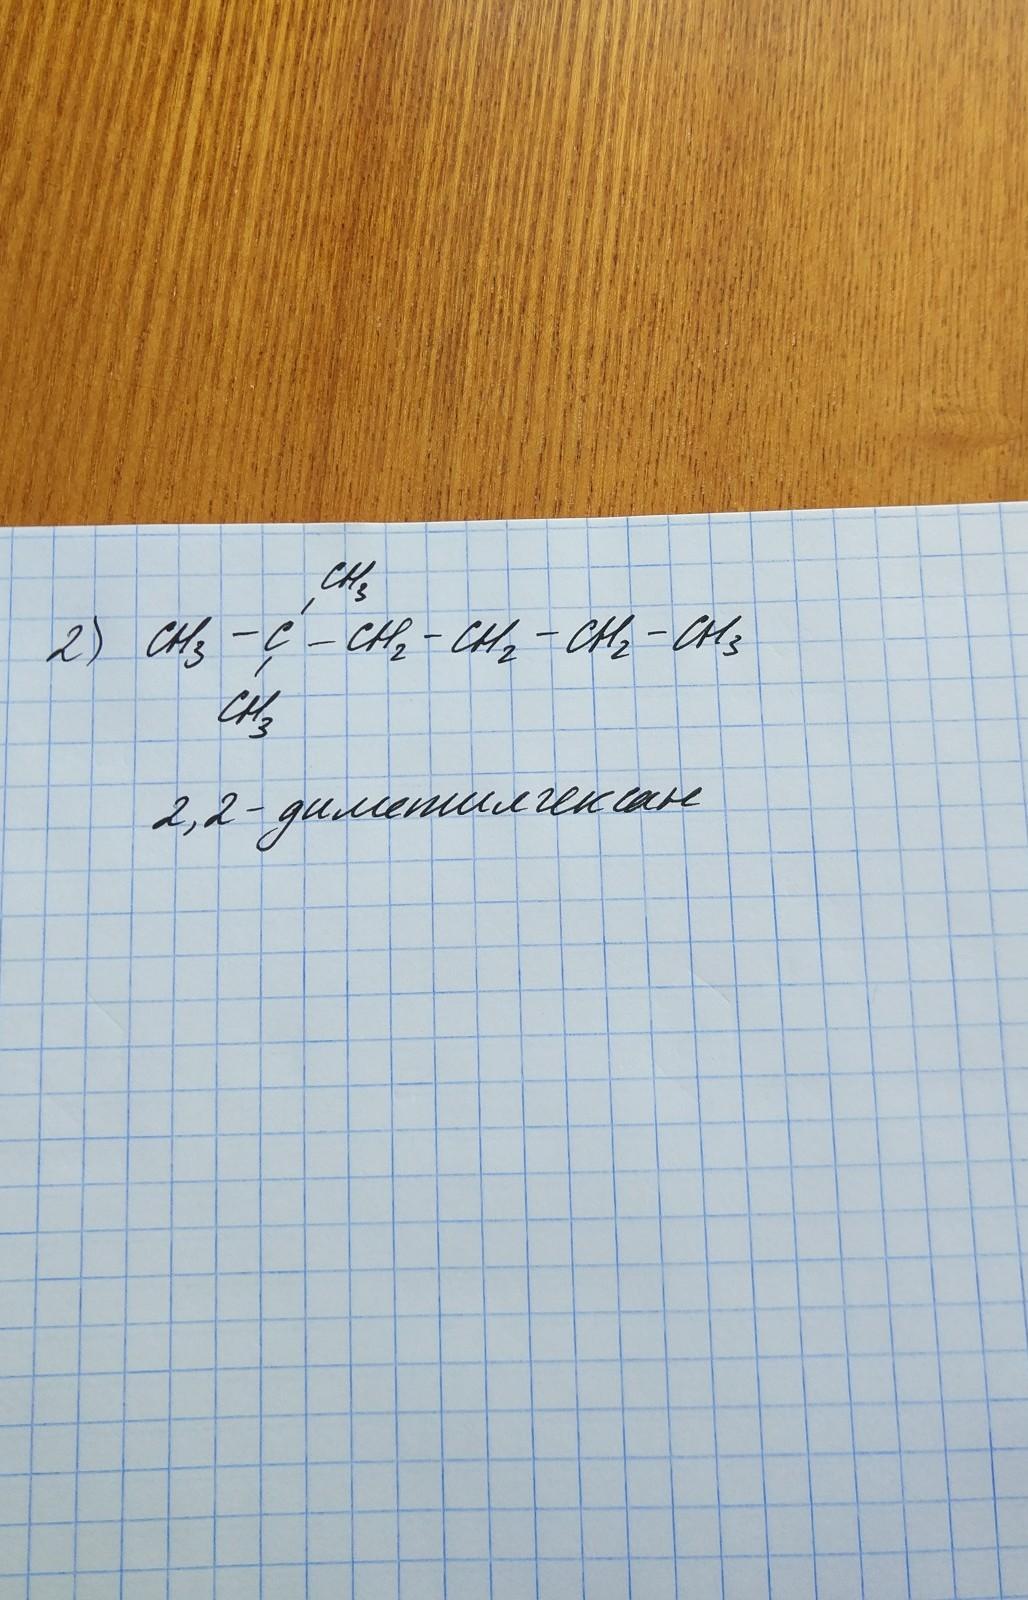 CH₃
2) CH₃ – C – CH₂ – CH₂ – CH₂ – CH₃
CH₃
2,2-диметилгексан